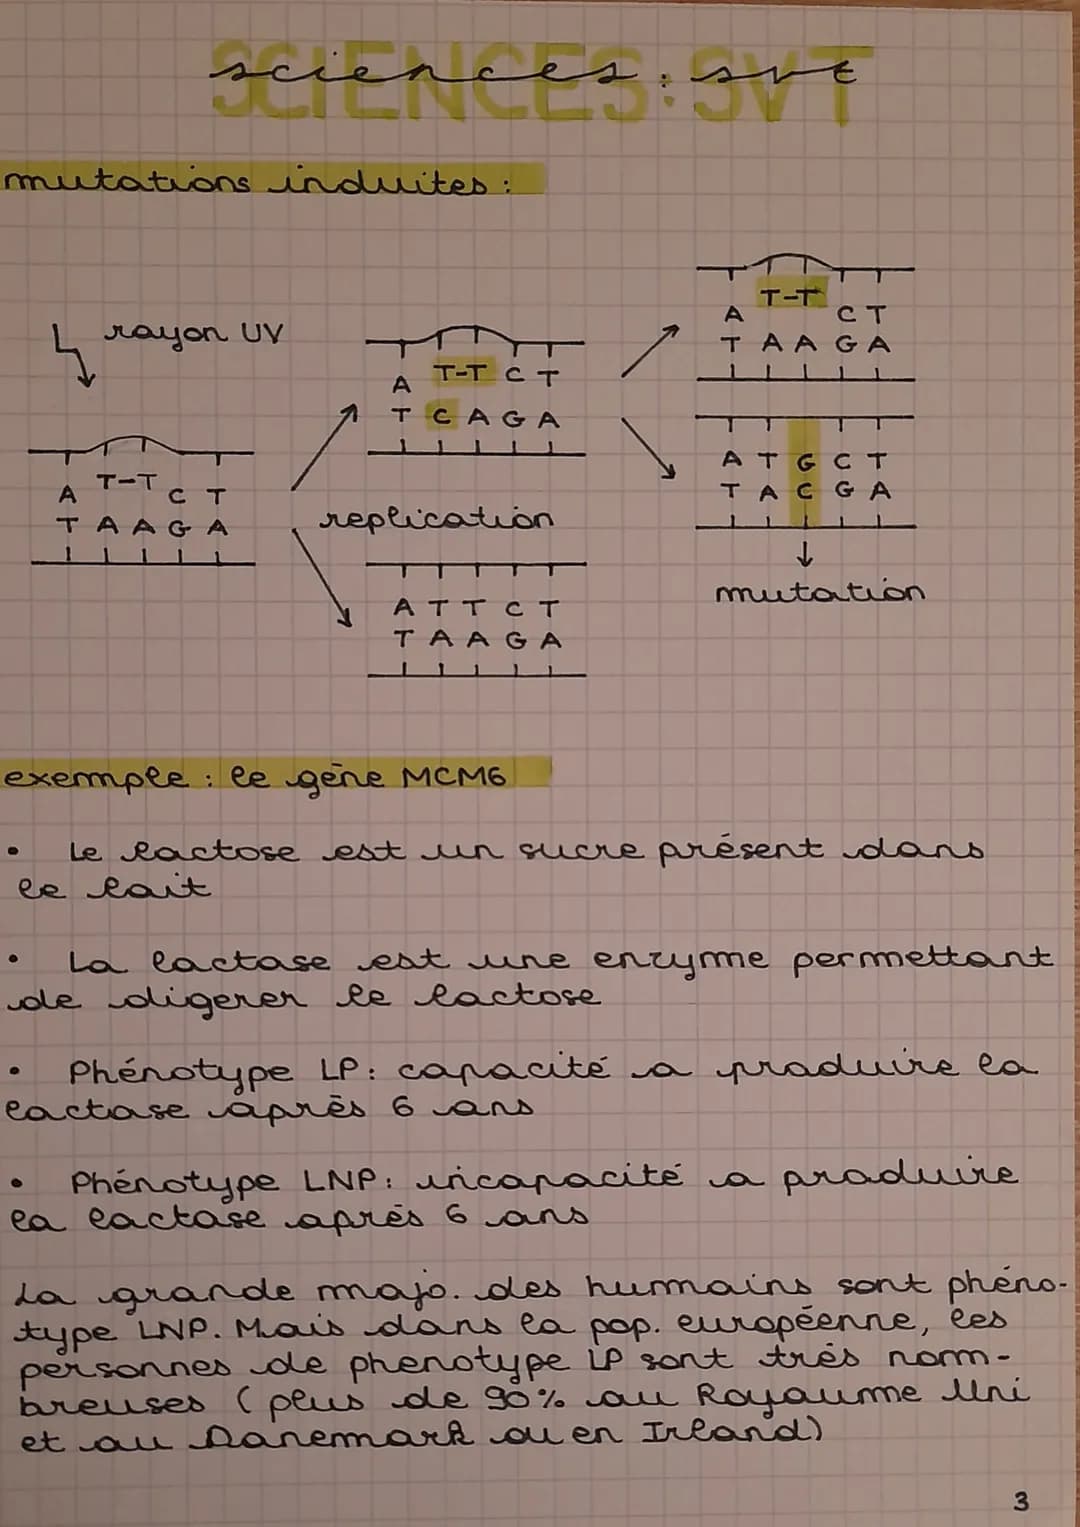 SCIENCES: SVT
sciences: svt
mutations induites:
rayon UV
T-T
A C T
T A A G A
T-T C T
A
T C A G A
replication
A T T C T
T A A G A
T-T
A C T
T A A G A
A T G C T
T A C G A
mutation
exemple : le gène MCM6
• Le lactose est un sucre présent dans
le lait
• La lactase est une enzyme permettant
de digerer le lactose
• Phénotype LP: capacité a produire la
lactase après 6 ans
• Phénotype LNP: incapacité a produire
la lactase aprés 6 ans
La grande majo. des humains sont phéno-
type LNP. Mais dans la pop. européenne, les
personnes de phenotype LP sont trés nom-
breuses (plus de 90% au Royaume Uni
et au Danemark ou en Irland)
3